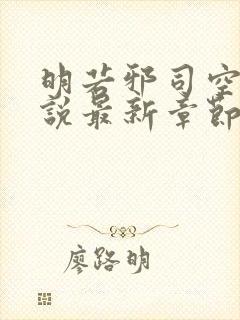 明若邪司空
說最新章節
廖路明